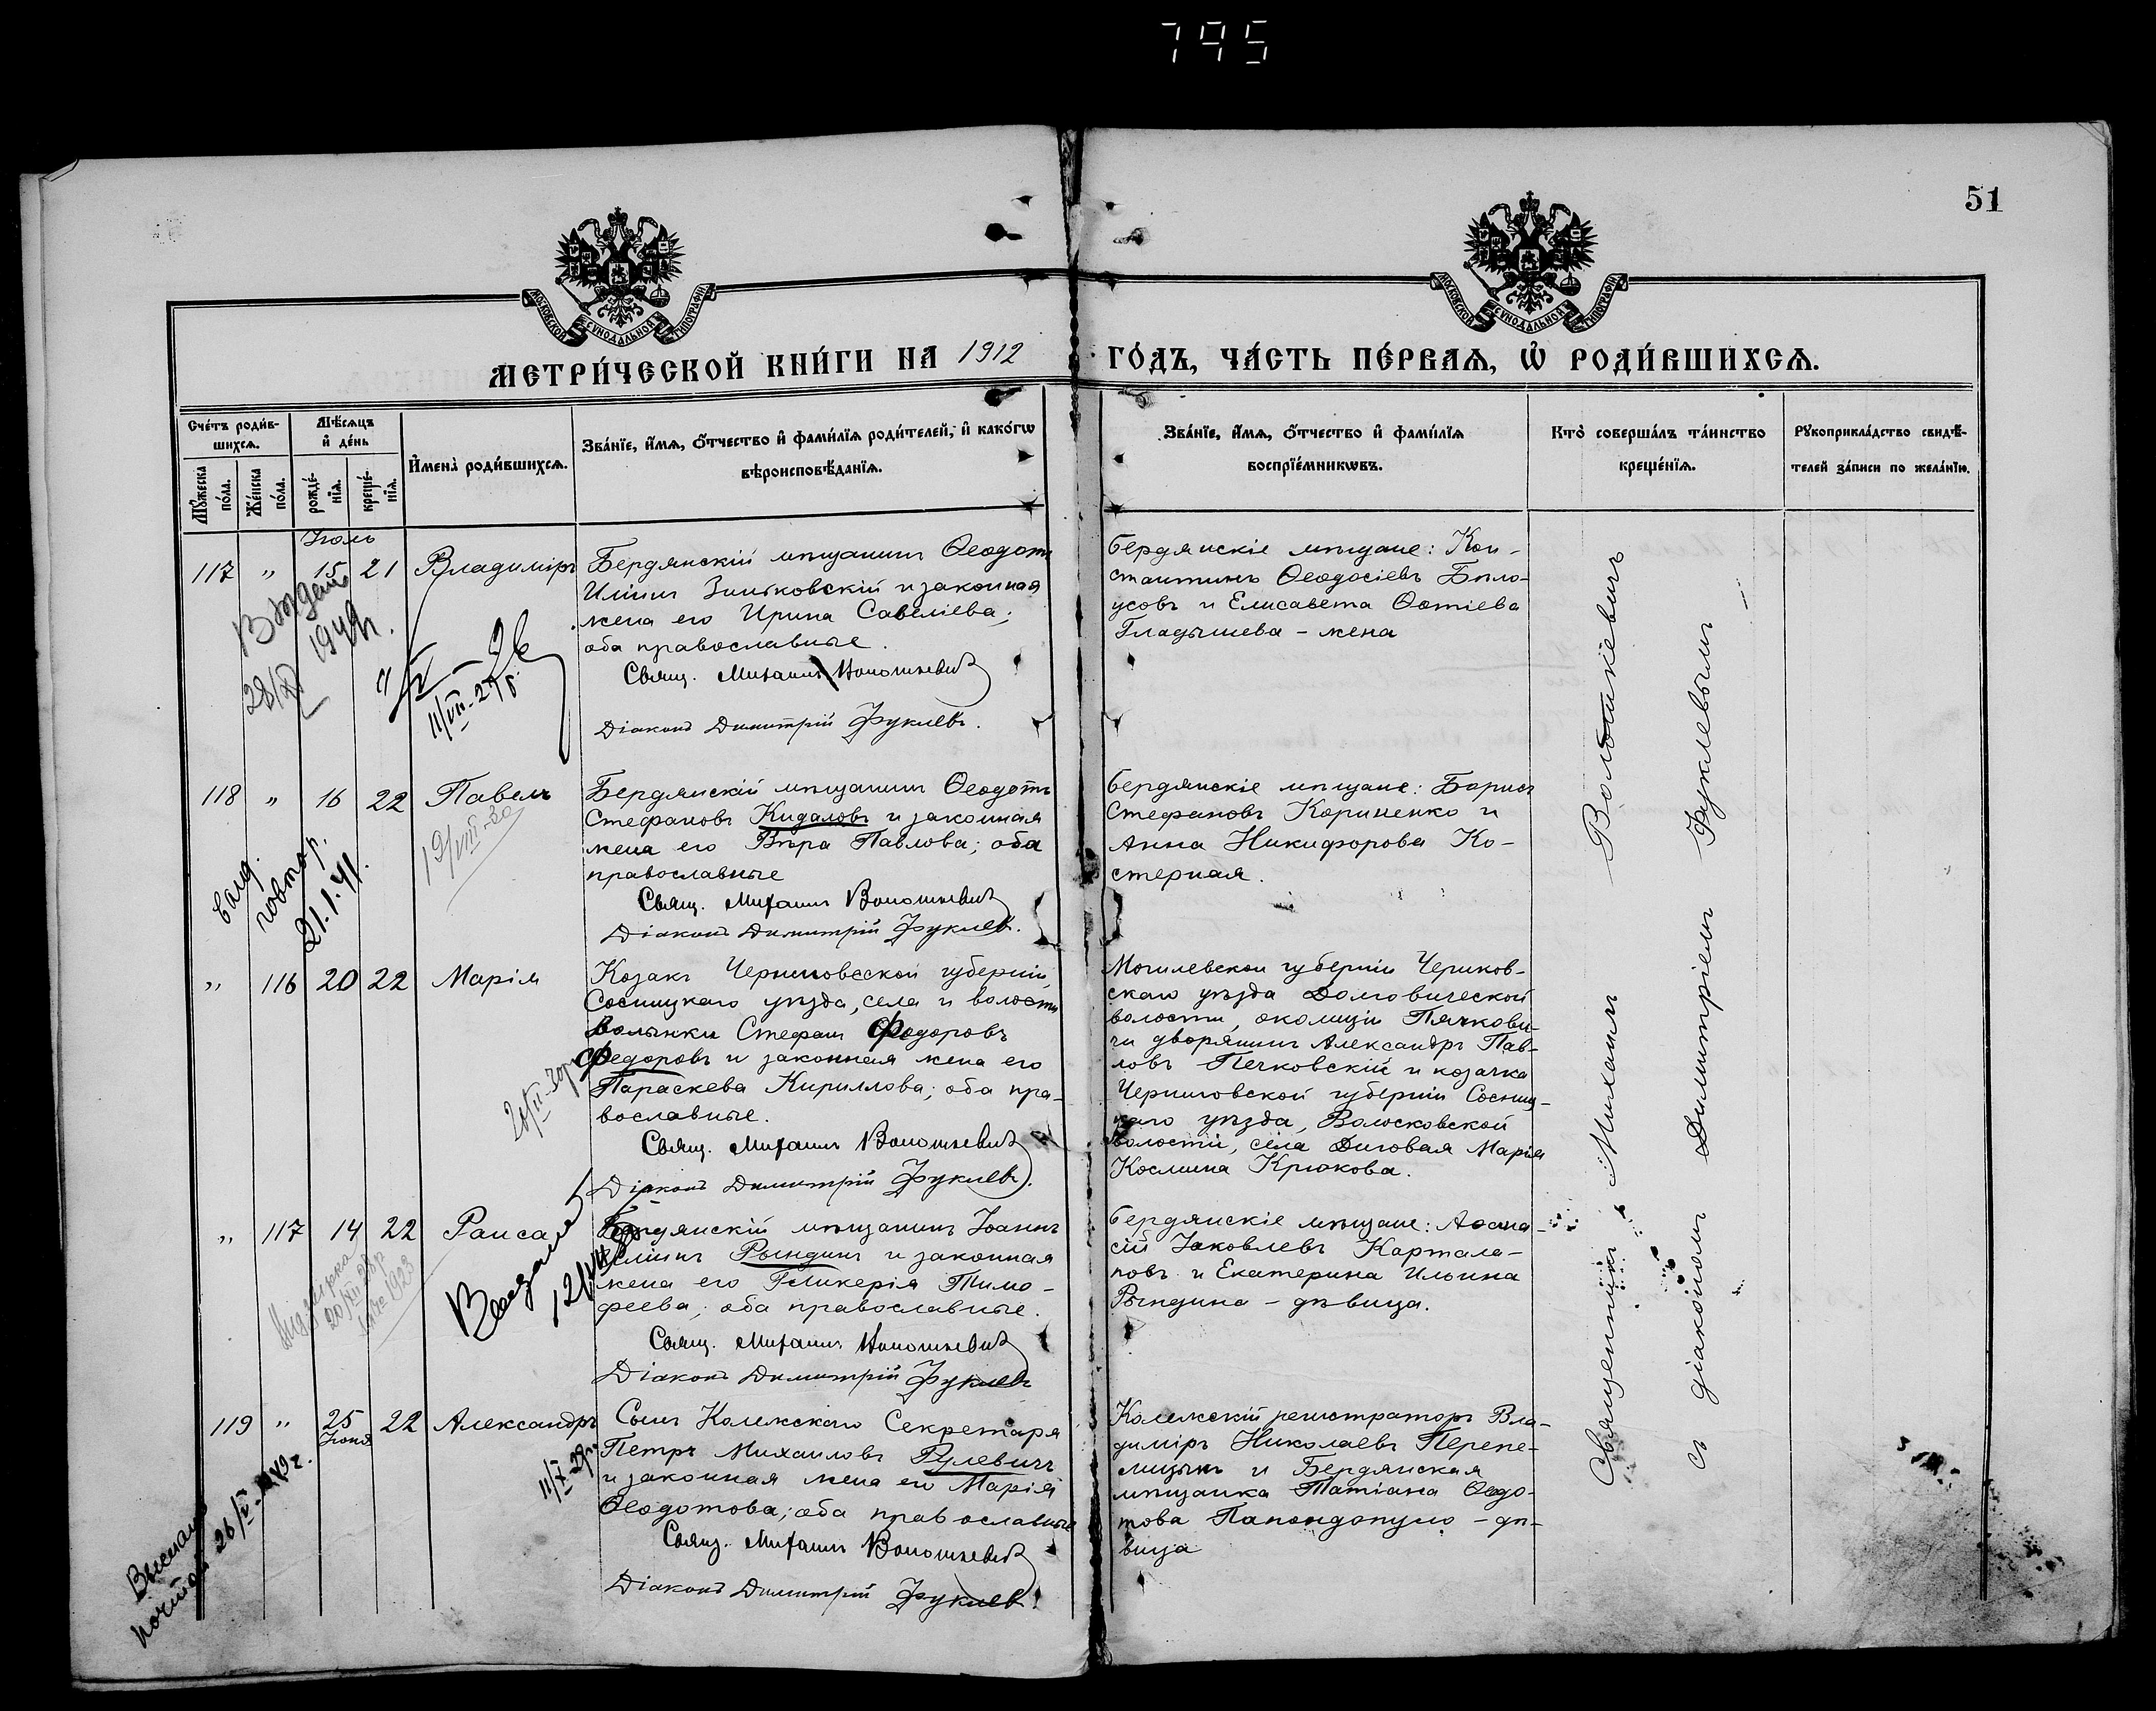 795
51
МОСКОВСКОЙ СѴНОДАЛЬНОЙ ТИПОГРАФІИ
МОСКОВСКОЙ СѴНОДАЛЬНОЙ ТИПОГРАФІИ
МЕТРИ́ЧЕСКОЙ КНИ́ГИ НА 1912 ГО́ДЪ, ЧА́СТЬ ПЕ́РВАѦ, Ѡ҆ РОДИ́ВШИХСѦ.
Сче́тъ роди́в-
шихсѧ.
Мꙋ́жеска по́ла.
Же́нска по́ла.
Мѣ́сѧцъ
и҆ де́нь
рожде́-
нїѧ.
креще́-
нїѧ.
И҆мена̀ роди́вшихсѧ.
Зва́нїе, и҆́мѧ, ѻ҆́тчество и҆ фами́лїѧ роди́телей, и҆ како́гѡ
вѣроисповѣ́данїѧ.
Зва́нїе, и҆́мѧ, ѻ҆́тчество и҆ фами́лїѧ
воспрїе́мникѡвъ.
Кто̀ соверша́лъ та́инство
креще́нїѧ.
Рꙋкоприкла́дство свидѣ́-
телей за́писи по жела́нїю.
Іюль
117 " 15 21 Владиміръ
Бердянскій мѣщанинъ Ѳеодотъ
Иліинъ Зиньковскій и законная
жена его Ирина Савеліева;
оба православные.
Свящ. Михаилъ Волошкевич
Діаконъ Димитрій Фуклевъ.
Бердянскіе мѣщане: Кон-
стантинъ Ѳеодосіевъ Бѣло-
усовъ и Елисавета Ѳотіева
Гладышева - жена
28/XI
11/VII-27 г.
118 " 16 22 Павелъ
Бердянскій мѣщанинъ Ѳеодотъ
Стефановъ Кидаловъ и законная
жена его Вѣра Павлова; оба
православные
Свящ. Михаилъ Волошкевич
Діаконъ Димитрій Фуклев.
Бердянскіе мѣщане: Борисъ
Стефановъ Кориненко и
Анна Никифорова Ко-
стерная.
19/VIII-30
повтор.
21.1.41.
" 116 20 22 Марія
Козакъ Черниговсской губерніи,
Сосницкаго уѣзда, села и волости
Волынки Стефанъ Федоровъ
Федоровъ и законная жена его
Параскева Кириллова; оба пра-
вославные.
Свящ. Михаилъ Волошкевич
Діаконъ Димитрій Фуклевъ.
Могилевской губерніи Чериков-
скаго уѣзда Долговической
волости, околицы Пячкови-
чи дворянинъ Александръ Пав-
ловъ Печковскій и козачка
Черниговской губерніи Сосниц-
каго уѣзда, Волосковской
волости, села Диговая Марія
Космина Крюкова.
" 117 14 22 Раиса
Бердянскій мѣщанинъ Іоаннъ
Иліинъ Рындинъ и законная
жена его Гликерія Тимо-
феева; оба православные.
Свящ. Михаилъ Волошкевич
Діаконъ Димитрій Фуклевъ
Бердянскіе мѣщане: Аѳана-
сій Іаковлевъ Картала-
повъ и Екатерина Ильина
Рындина - дѣвица.
119 " 25 Іюня 22 Александръ
Сынъ Колежскаго Секретаря
Петръ Михаиловъ Рулевичъ
и законная жена его Марія
Ѳеодотова; оба православные
Свящ. Михаилъ Волошкевич
Діаконъ Димитрій Фуклев.
Колежскій регистраторъ Вла-
диміръ Николаевъ Перепе-
лицынъ и Бердянская
мѣщанка Татіана Ѳеодо-
това Папандопуло - дѣ-
вица
11/X-29г.
Выслано
почтой 26/V-1949г.
Священникъ Михаилъ Волошкевичъ
съ діакономъ Димитріемъ Фуклевымъ